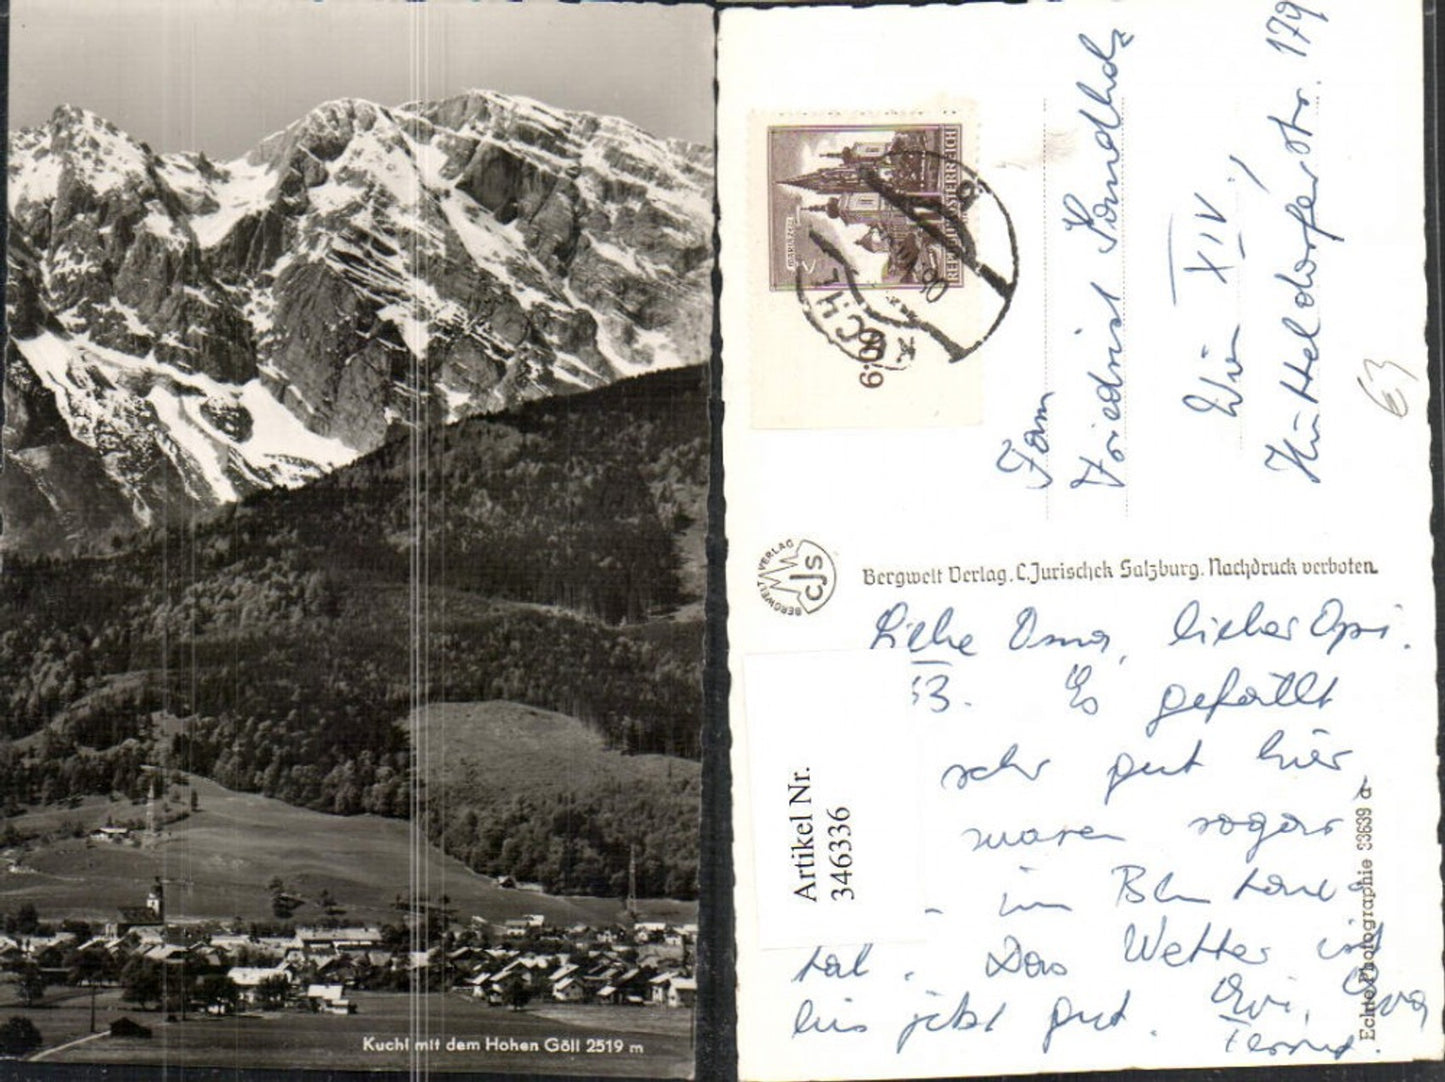 Kuchl mit dem Hohen Göll 2519 m
MARIAZELL
REPUBLIK ÖSTERREICH
6:00
Fam
Friedrich
Wien XIV,
Hütteldorferstr. 179
63
BERGWELT VERLAG
CJS
Bergwelt Verlag. C. Jurischek Salzburg. Nachdruck verboten
Liebe Oma, lieber Opi.
Es gefällt
sehr gut hier
waren sogar
im
tal. Das Wetter ist
bis jetzt gut.
Artikel Nr.
346336
Echte Photographie 33639